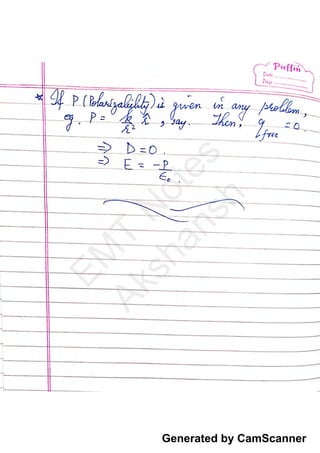 Puffin
Date
Page
* If P (Polarizability) is given in any problem,
eg. P = k/r² r̂ , say. Then, q_free = 0.
⇒ D = 0.
⇒ E = -P/ε₀.
EMT Notes
Akshansh
Generated by CamScanner